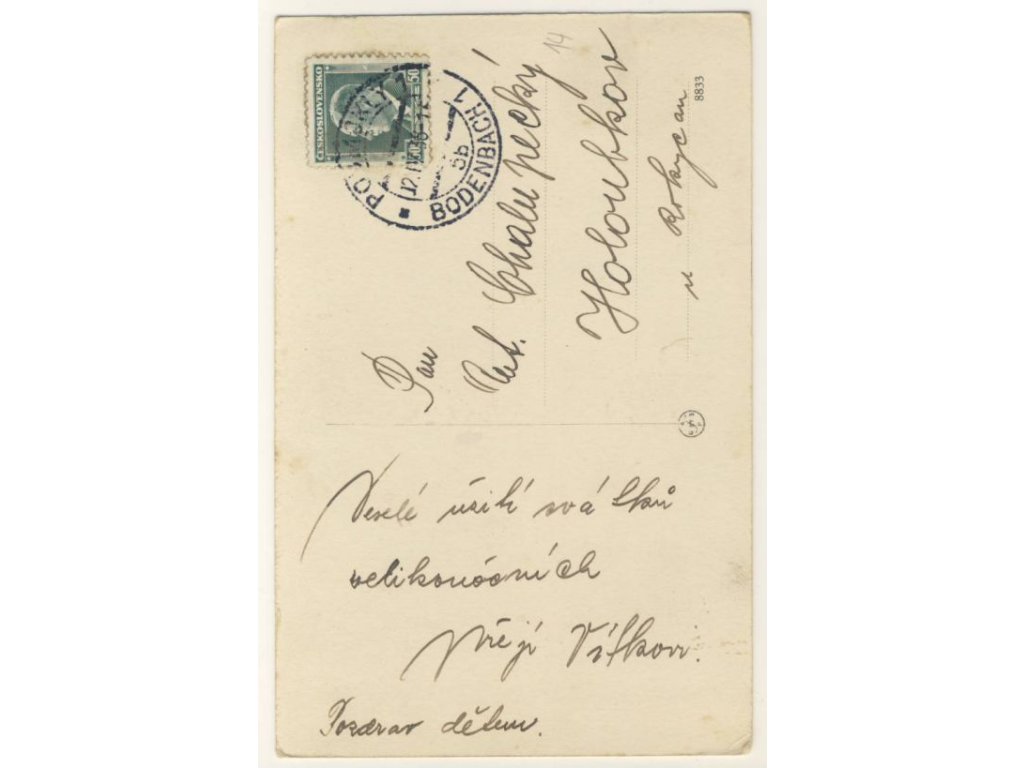 ČESKOSLOVENSKO
50
PODMOKLY 1
BODENBACH 1
5b
14
Pan
Ant. Chalupecký
Holoubkov
u Rokycan
8833
Veselé užití svátků
velikonočních
přejí Vítkovi.
Pozdrav dětem.